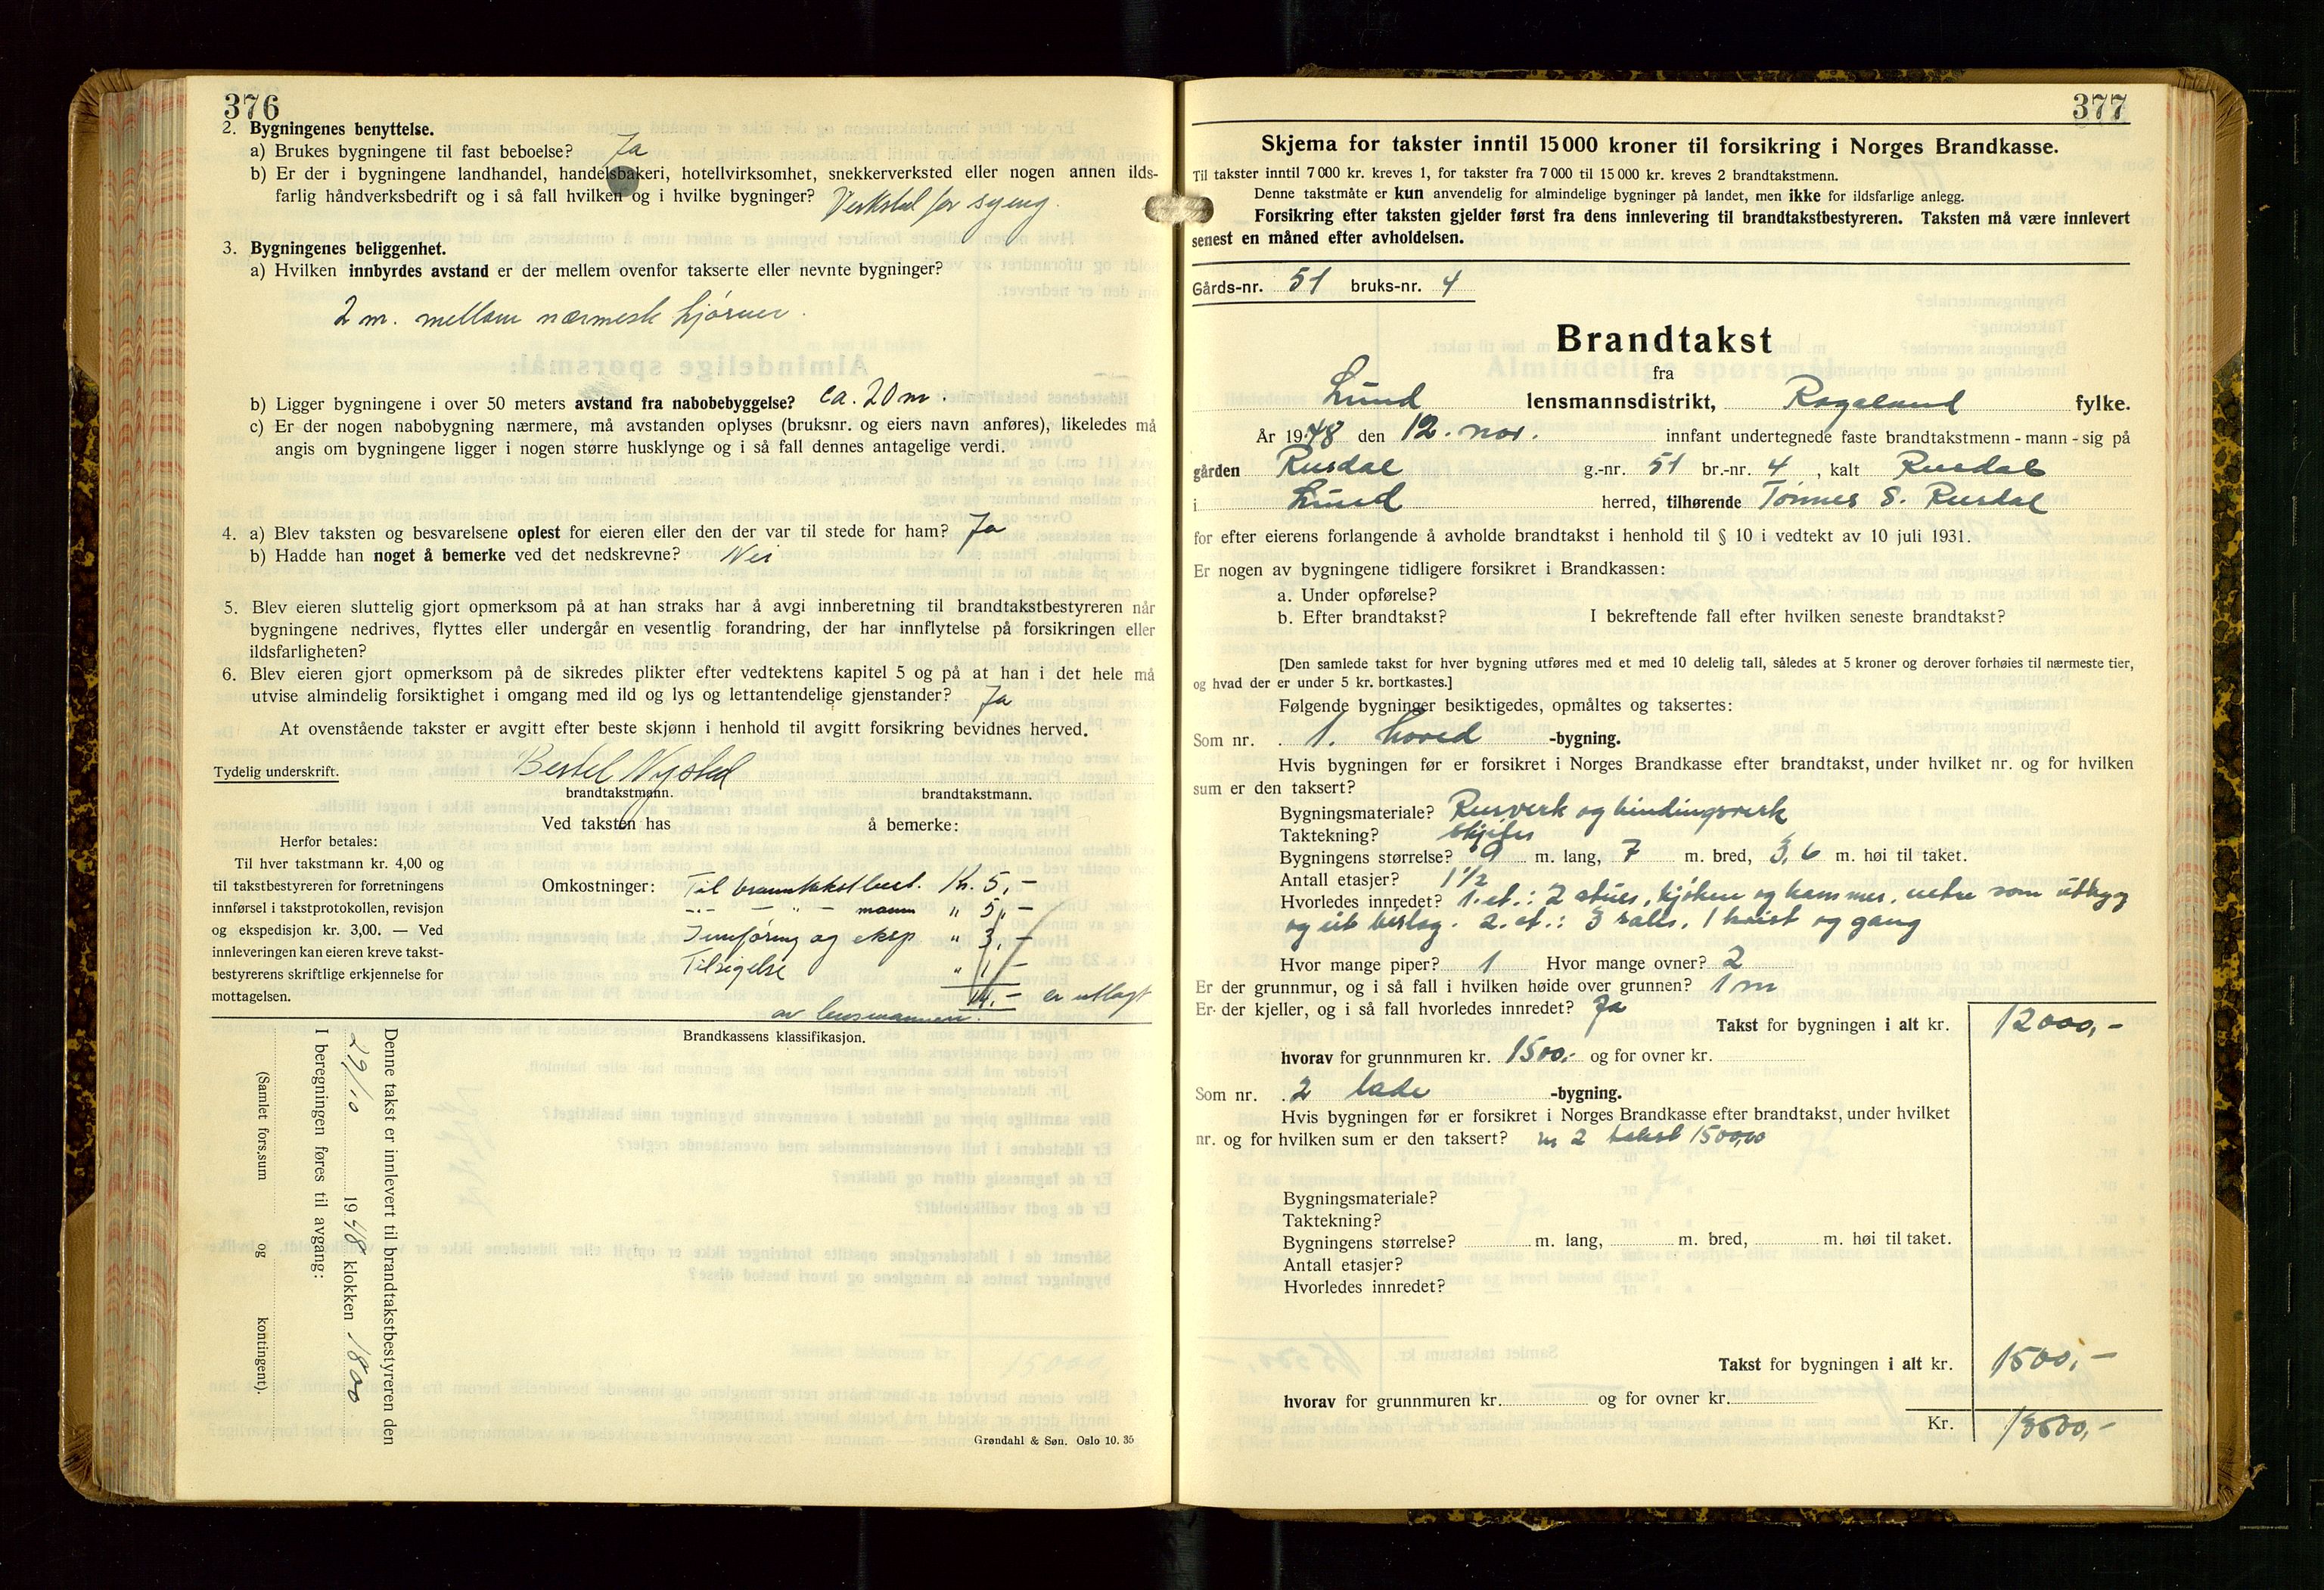 376
2. Bygningenes benyttelse.
a) Brukes bygningene til fast beboelse? Ja
b) Er der i bygningene landhandel, handelsbakeri, hotellvirksomhet, snekkerverksted eller nogen annen ilds-
farlig håndverksbedrift og i så fall hvilken og i hvilke bygninger? Verksted for syeng.
3. Bygningenes beliggenhet.
a) Hvilken innbyrdes avstand er der mellem ovenfor takserte eller nevnte bygninger?
2 m. mellom nærmeste hjørner.
b) Ligger bygningene i over 50 meters avstand fra nabobebyggelse? ca. 20 m.
c) Er der nogen nabobygning nærmere, må avstanden oplyses (bruksnr. og eiers navn anføres), likeledes må
angis om bygningene ligger i nogen større husklynge og i så fall dennes antagelige verdi.
4. a) Blev taksten og besvarelsene oplest for eieren eller den der var til stede for ham? Ja
b) Hadde han noget å bemerke ved det nedskrevne? Nei
5. Blev eieren sluttelig gjort opmerksom på at han straks har å avgi innberetning til brandtakstbestyreren når
bygningene nedrives, flyttes eller undergår en vesentlig forandring, der har innflytelse på forsikringen eller
ildsfarligheten?
6. Blev eieren gjort opmerksom på de sikredes plikter efter vedtektens kapitel 5 og på at han i det hele må
utvise almindelig forsiktighet i omgang med ild og lys og lettantendelige gjenstander? Ja
At ovenstående takster er avgitt efter beste skjønn i henhold til avgitt forsikring bevidnes herved.
Tydelig underskrift. Bertel Nysted
brandtakstmann. brandtakstmann.
Ved taksten has å bemerke:
Herfor betales:
Til hver takstmann kr. 4,00 og
til takstbestyreren for forretningens
innførsel i takstprotokollen, revisjon
og ekspedisjon kr. 3,00. — Ved
innleveringen kan eieren kreve takst-
bestyrerens skriftlige erkjennelse for
mottagelsen.
Omkostninger: Til branntakstbest. Kr. 5,-
-"- - " - mann " 5,-
Innføring og eksp " 3,-
Tilsigelse " 1,-
14,- er utlagt
av lensmannen.
Brandkassens klassifikasjon.
Denne takst er innlevert til brandtakstbestyreren den
29/10 1948 klokken 1800
I beregningen føres til avgang:
(Samlet fors.sum og kontingent).
Grøndahl & Søn. Oslo 10. 35
377
Skjema for takster inntil 15 000 kroner til forsikring i Norges Brandkasse.
Til takster inntil 7 000 kr. kreves 1, for takster fra 7 000 til 15 000 kr. kreves 2 brandtakstmenn.
Denne takstmåte er kun anvendelig for almindelige bygninger på landet, men ikke for ildsfarlige anlegg.
Forsikring efter taksten gjelder først fra dens innlevering til brandtakstbestyreren. Taksten må være innlevert
senest en måned efter avholdelsen.
Gårds-nr. 51 bruks-nr. 4
Brandtakst
fra
Lund lensmannsdistrikt, Rogaland fylke.
År 1948 den 12. nov. innfant undertegnede faste brandtakstmenn - mann - sig på
gården Rusdal g.-nr. 51 br.-nr. 4, kalt Rusdal
i Lund herred, tilhørende Tønnes S. Rusdal
for efter eierens forlangende å avholde brandtakst i henhold til § 10 i vedtekt av 10 juli 1931.
Er nogen av bygningene tidligere forsikret i Brandkassen:
a. Under opførelse?
b. Efter brandtakst? I bekreftende fall efter hvilken seneste brandtakst?
[Den samlede takst for hver bygning utføres med et med 10 delelig tall, således at 5 kroner og derover forhøies til nærmeste tier,
og hvad der er under 5 kr. bortkastes.]
Følgende bygninger besiktigedes, opmåltes og taksertes:
Som nr. 1. hoved -bygning.
Hvis bygningen før er forsikret i Norges Brandkasse efter brandtakst, under hvilket nr. og for hvilken
sum er den taksert?
Bygningsmateriale? Rusverk og bindingsverk
Taktekning? Skjifer
Bygningens størrelse? 9 m. lang, 7 m. bred, 3,6 m. høi til taket.
Antall etasjer? 1 1/2
Hvorledes innredet? 1. et.: 2 stuer, kjøken og kammer, uetre som utbygg
og utb beslag. 2. et.: 3 salls, 1 kvist og gang
Hvor mange piper? 1 Hvor mange ovner? 2
Er der grunnmur, og i så fall i hvilken høide over grunnen? 1 m
Er der kjeller, og i så fall hvorledes innredet? Ja
Takst for bygningen i alt kr. 12000,-
hvorav for grunnmuren kr. 1500,- og for ovner kr.
Som nr. 2 lade -bygning.
Hvis bygningen før er forsikret i Norges Brandkasse efter brandtakst, under hvilket
nr. og for hvilken sum er den taksert? nr 2 takst 1500,00
Bygningsmateriale?
Taktekning?
Bygningens størrelse? m. lang, m. bred, m. høi til taket.
Antall etasjer?
Hvorledes innredet?
Takst for bygningen i alt kr. 1500,-
hvorav for grunnmuren kr. og for ovner kr.
Kr. 13500,-